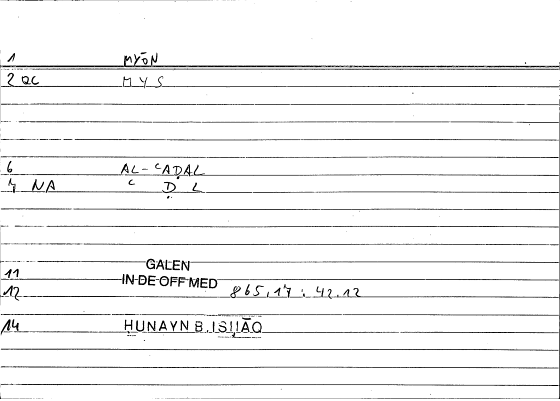 1 MYŌN
2 QC M Y S
6 AL-ʿAḌAL
7 NA ʿ Ḍ L
11 GALEN
IN DE OFF MED
12 865,17 : 42.12
14 ḤUNAYN B. ISḤĀQ